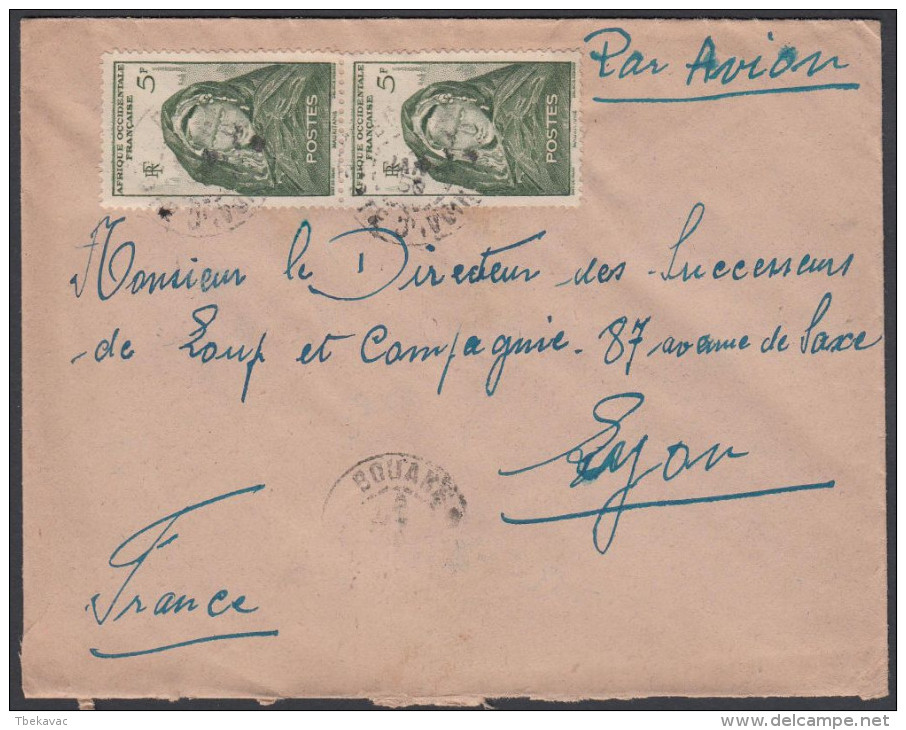 Par Avion
5F
AFRIQUE OCCIDENTALE
FRANÇAISE
RF
POSTES
MAURITANIE
5F
AFRIQUE OCCIDENTALE
FRANÇAISE
RF
POSTES
MAURITANIE
Monsieur le Directeur des Successeurs
de Loup et Compagnie. 87 avenue de Saxe
Lyon
BOUAKE
France
Tbekavac
www.delcampe.net